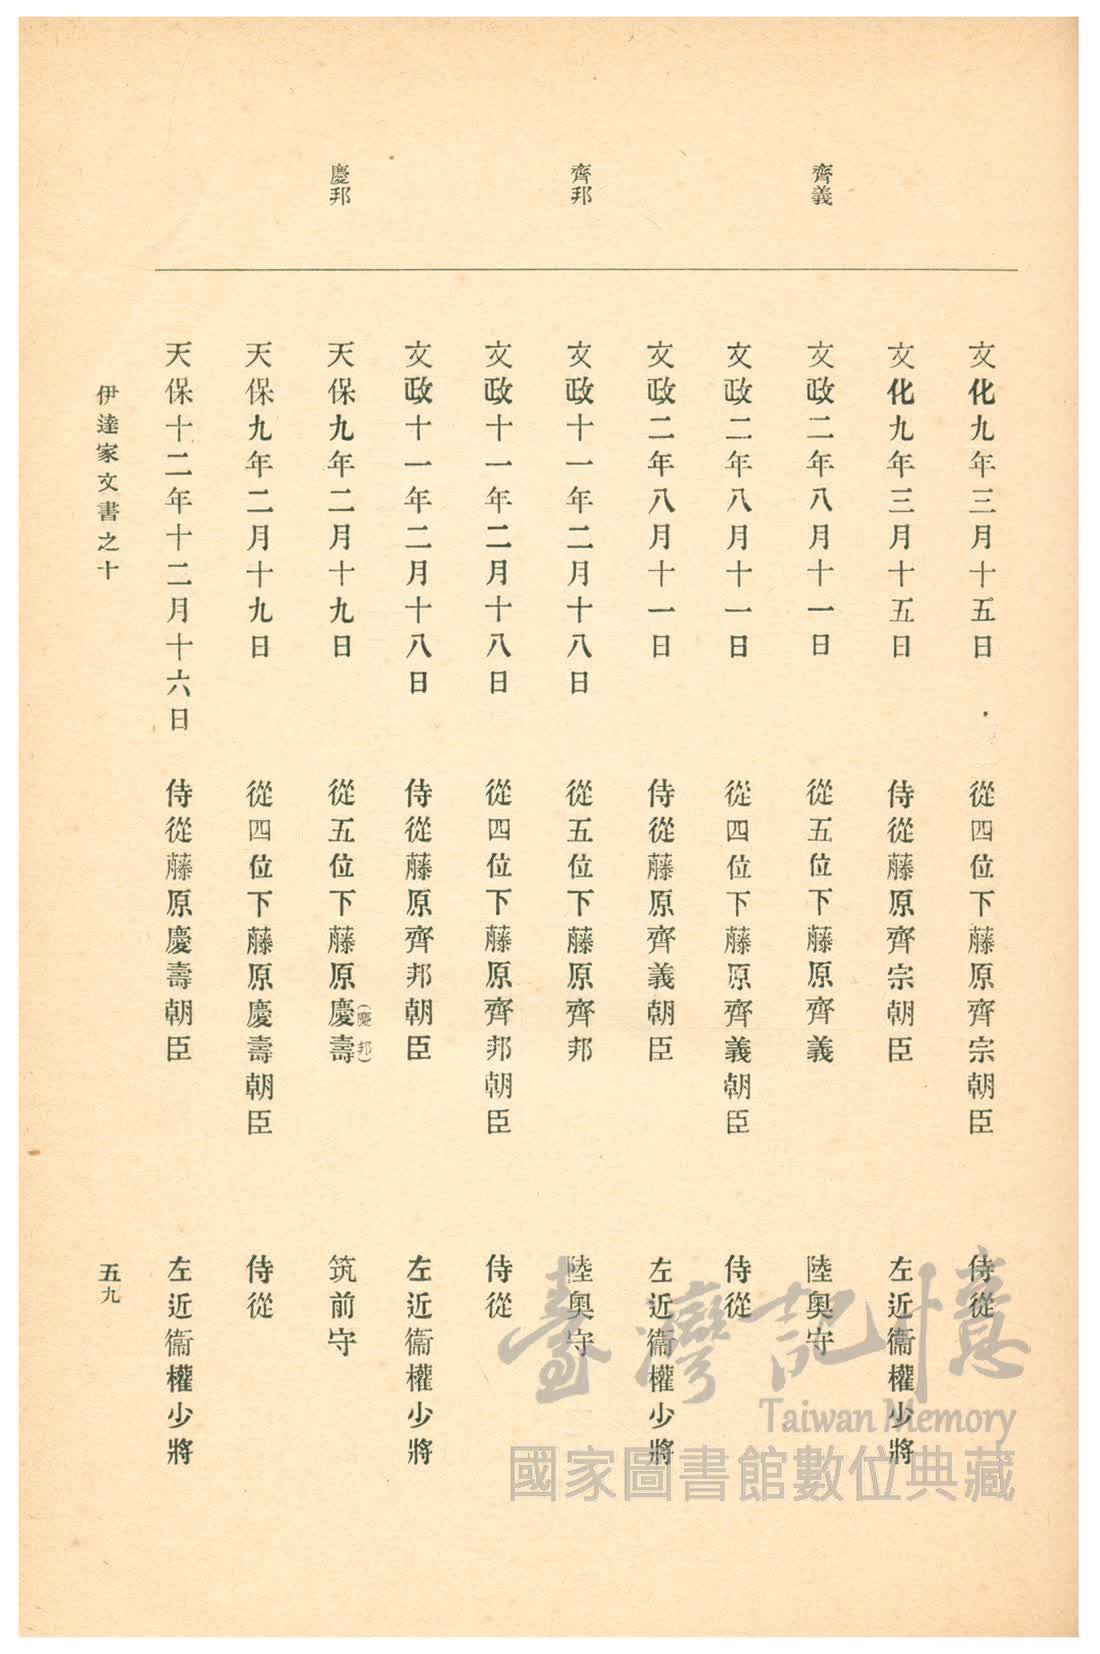 齊義
齊邦
慶邦
文化九年三月十五日 從四位下藤原齊宗朝臣 侍從
文化九年三月十五日 侍從藤原齊宗朝臣 左近衞權少將
文政二年八月十一日 從五位下藤原齊義 陸奧守
文政二年八月十一日 從四位下藤原齊義朝臣 侍從
文政二年八月十一日 侍從藤原齊義朝臣 左近衞權少將
文政十一年二月十八日 從五位下藤原齊邦 陸奧守
文政十一年二月十八日 從四位下藤原齊邦朝臣 侍從
文政十一年二月十八日 侍從藤原齊邦朝臣 左近衞權少將
天保九年二月十九日 從五位下藤原慶壽 筑前守
(慶邦)
天保九年二月十九日 從四位下藤原慶壽朝臣 侍從
天保十二年十二月十六日 侍從藤原慶壽朝臣 左近衞權少將
伊達家文書之十 五九
臺灣記憶
Taiwan Memory
國家圖書館數位典藏